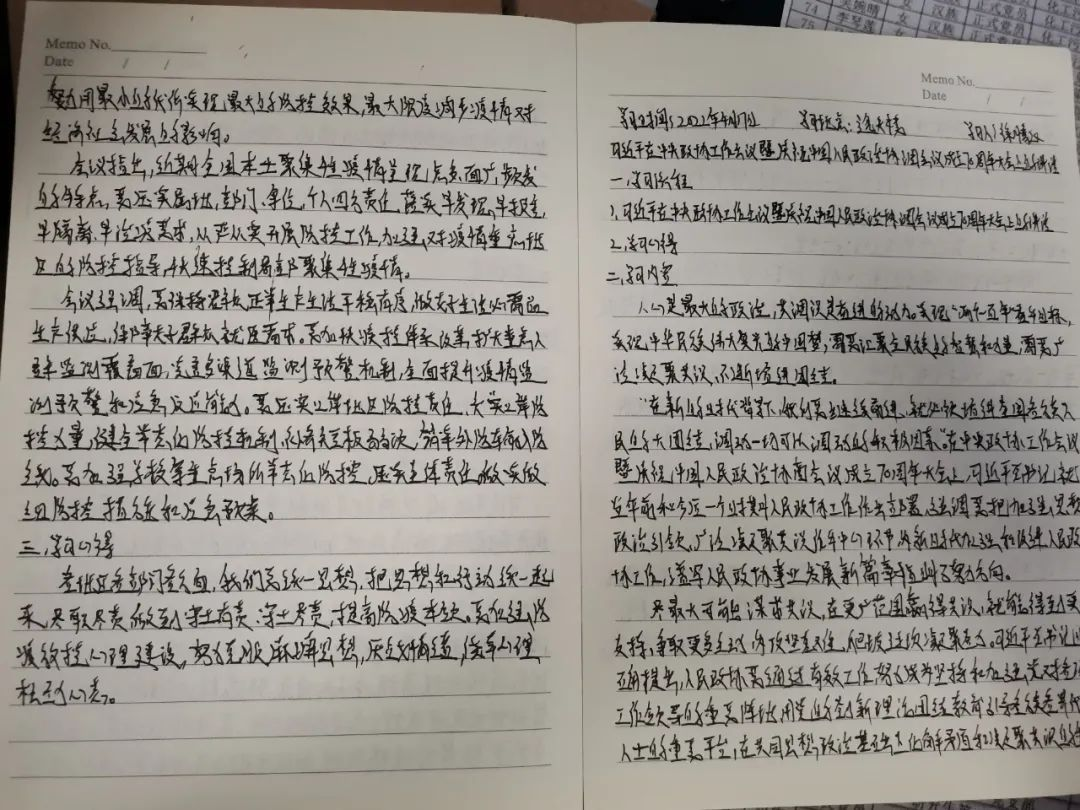 Memo No.
Date / /
努力用最小的代价实现最大的防控效果,最大限度减少疫情对
经济社会发展的影响。
会议指出,近期全国本土聚集性疫情呈现点多、面广、频发
的特点,要压实属地、部门、单位、个人四方责任,落实早发现、早报告、
早隔离、早治疗要求,从严从实开展防控工作,加强对疫情重点地
区的防控指导,快速控制局部聚集性疫情。
会议强调,要保持群众正常生产生活平稳有序,做好生活必需品
生产供应,保障夫子群众就医需求。要加快疫控体系改革,扩大重点人
群监测覆盖面,完善多渠道监测预警机制,全面提升疫情监
测预警和应急反应能力。要压实边境地区防控责任,大实边防
控力量,健全常态化防控机制,外防
线。要加强学校等重点场所常态化防控,压实主体责任,做实做
细防控措施和应急预案。
三、学习心得
各地区各部门各负,我们要统一思想,把思想和行动统一起
来,尽职尽责,做到守土有责、守土尽责,提高防疫本领。要加强防
疫效控心理建设,努力克服麻痹思想、厌战情绪、侥幸心理、
松劲心态。
Memo No.
Date / /
学习时间:2022年4月7日 学习地点: 学习人:徐
习近平在中央政协工作会议暨庆祝中国人民政治协商会议成立70周年大会上的讲话
一、学习流程
1、习近平在中央政协工作会议暨庆祝中国人民政治协商会议成立70周年大会上的讲话
2、学习心得
二、学习内容
人心是最大的政治,共识是奋进的动力。实现"两个一百年"奋斗目标,
实现中华民族伟大复兴的中国梦,需要汇聚全民族的智慧和力量,需要广
泛凝聚共识,不断增进团结。
"在新的时代背景下,做到要继续前进,就必须增进全国各族人
民的大团结,调动一切可以调动的积极因素"在中央政协工作会议
暨庆祝中国人民政治协商会议成立70周年大会上,习近平总书记就
当前和今后一个时期人民政协工作作出部署,强调要把加强思想
政治引领、广泛凝聚共识作为中心环节,为新时代加强和改进人民政
协工作、谱写人民政协事业发展新篇章指明了努力方向。
尽最大可能谋求共识,在更广范围赢得共识,就能得到更
支持,争取更多主动,为攻坚克难、
正确提出,人民政协要通过有效工作,努力成为坚持和加强党对各项
工作领导的重要阵地、用党的创新理论团结教育引导各族各界代
人士的重要平台、在共同思想政治基础上化解矛盾和凝聚共识的
74 吴婉晴 女 汉族 正式党员 化工
75 李 女 汉族 正式党员 化工